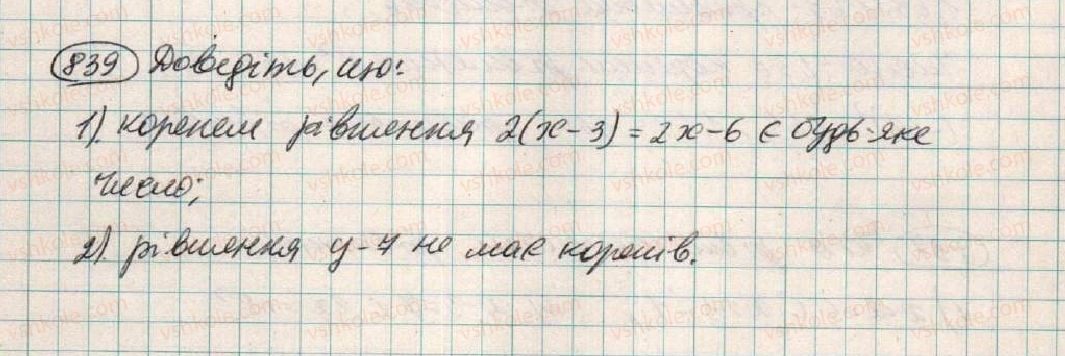 839 Доведіть, що:
1) коренем рівняння 2(x-3) = 2x-6 є будь-яке
число;
2) рівняння y-7 не має коренів.